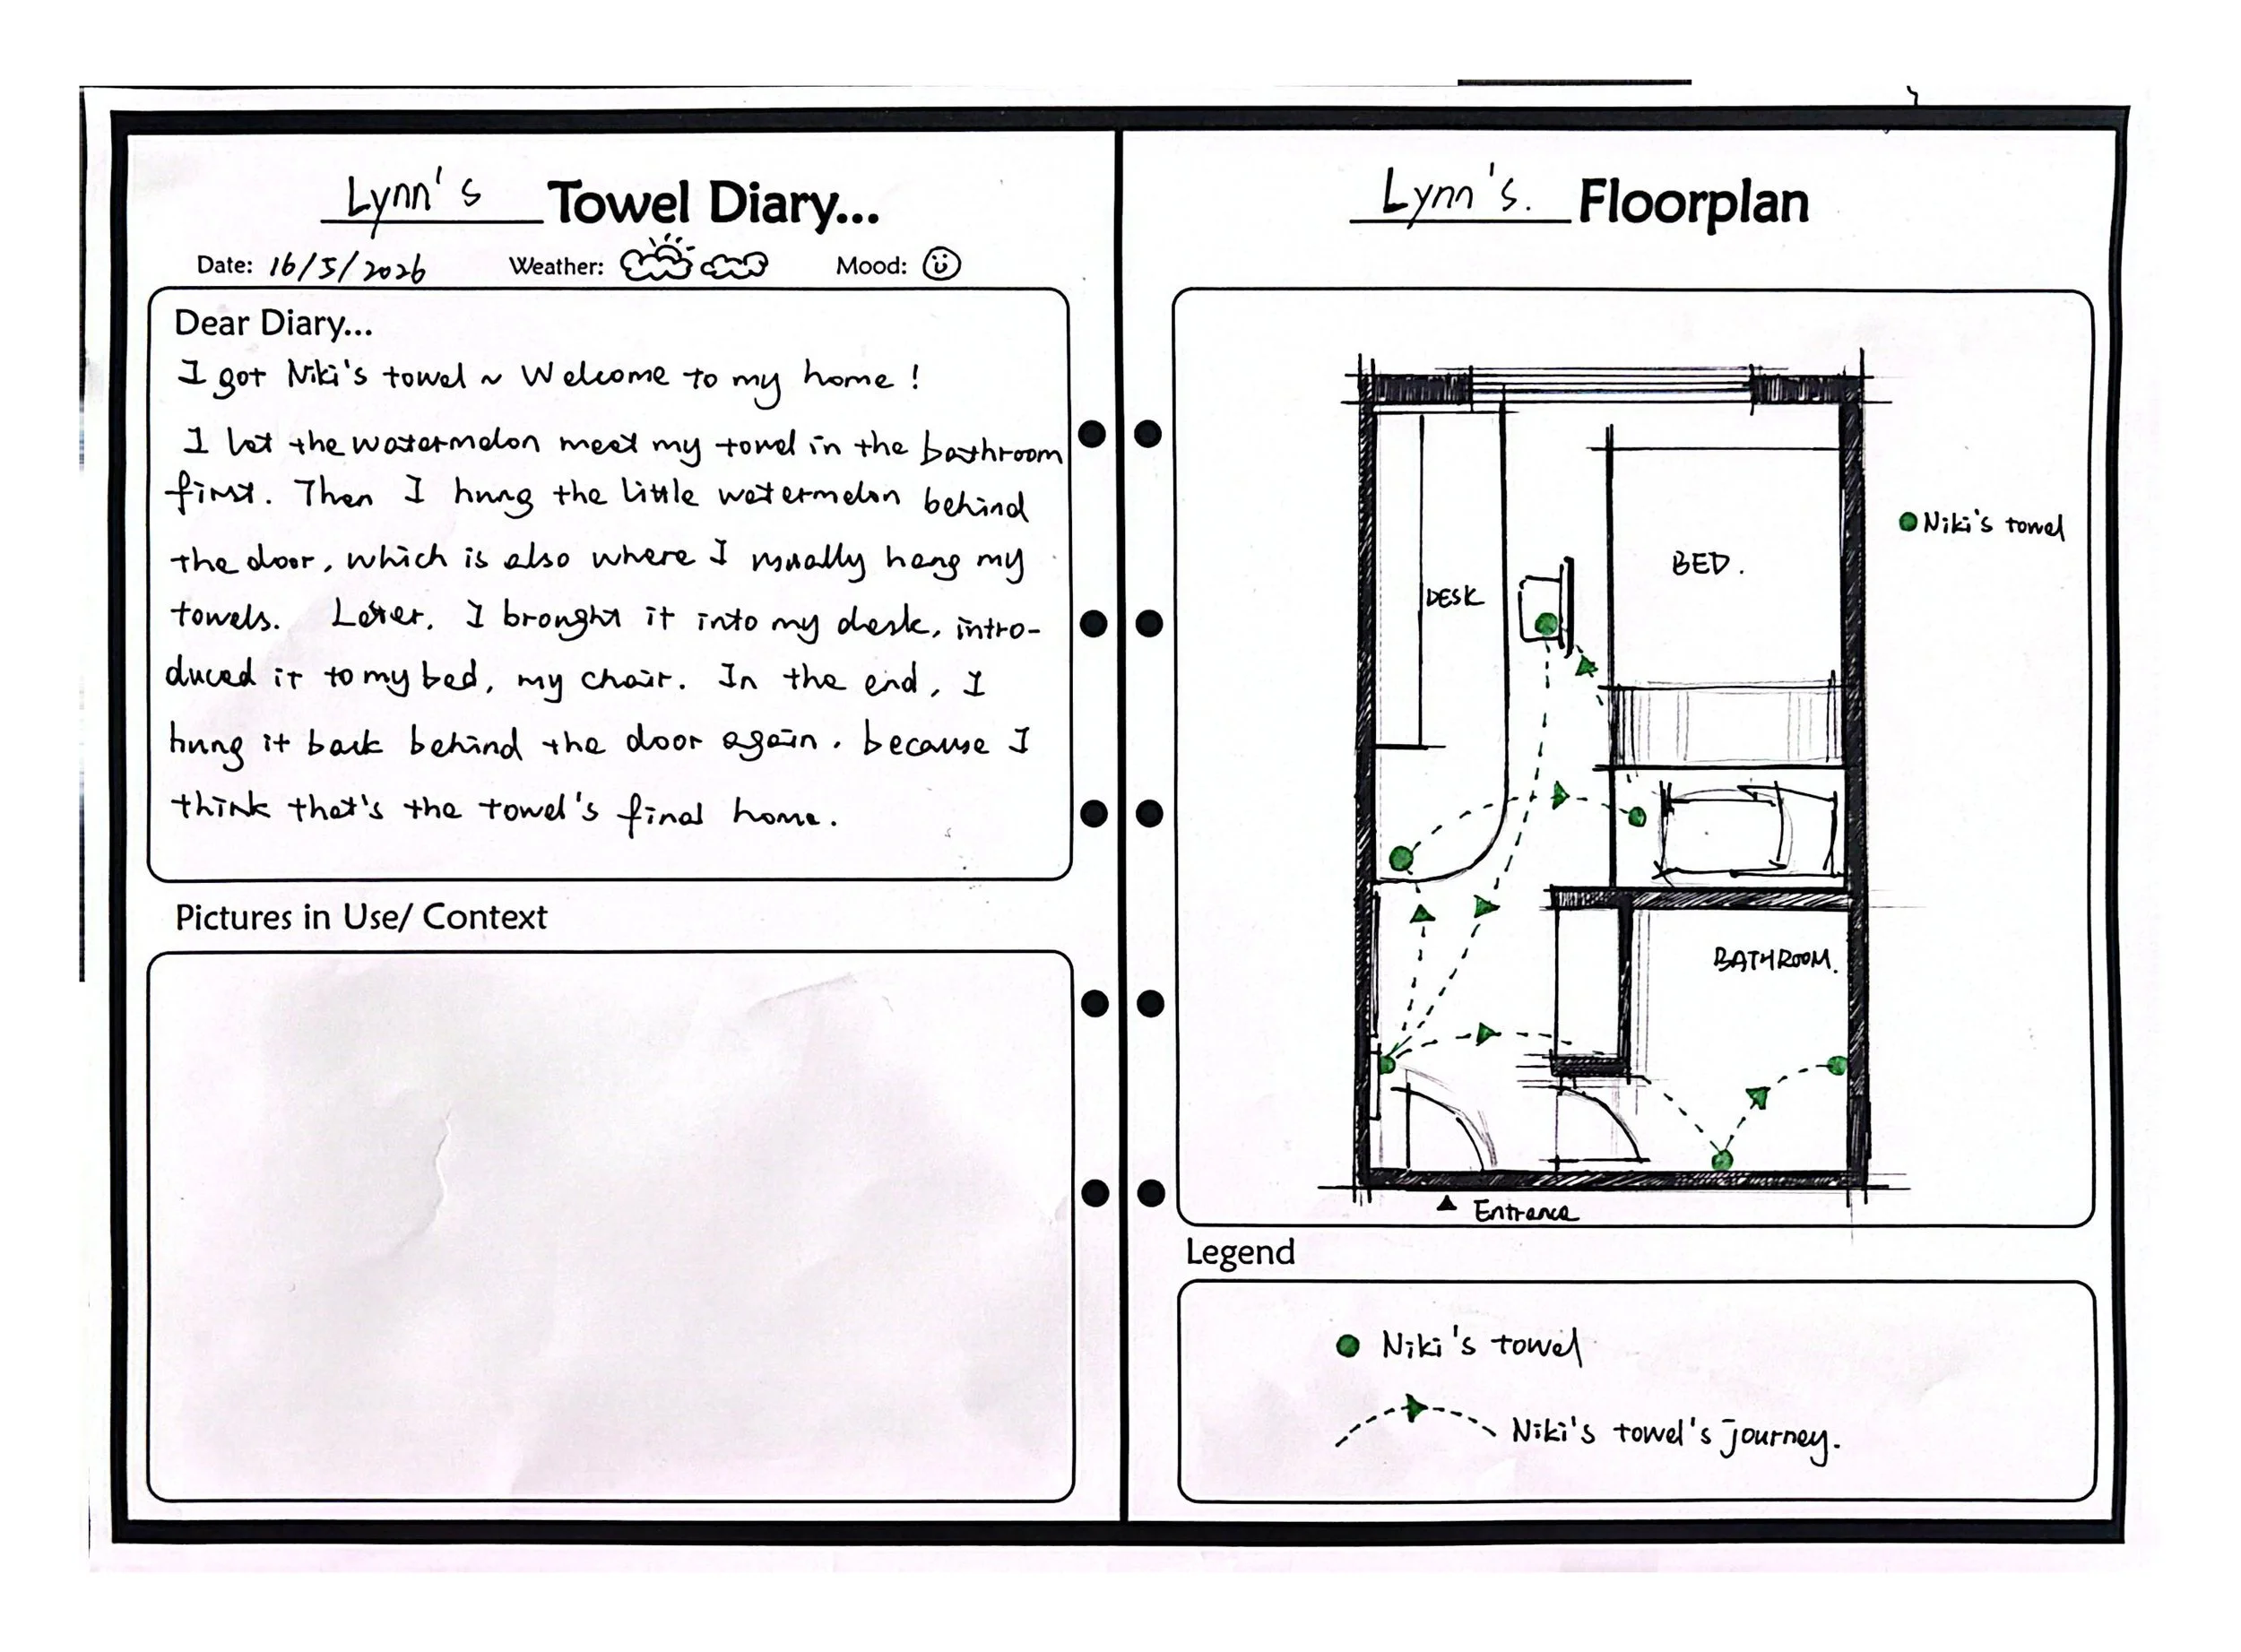 Lynn's Towel Diary...
Date: 16/5/2026 Weather: Mood:
Dear Diary...
I got Niki's towel ~ Welcome to my home !
I let the watermelon meet my towel in the bathroom
first. Then I hung the little watermelon behind
the door, which is also where I usually hang my
towels. Later, I brought it into my desk, intro-
duced it to my bed, my chair. In the end, I
hung it back behind the door again, because I
think that's the towel's final home.
Pictures in Use/ Context
Lynn's. Floorplan
Niki's towel
BED.
DESK
BATHROOM.
Entrance
Legend
Niki's towel
Niki's towel's journey.